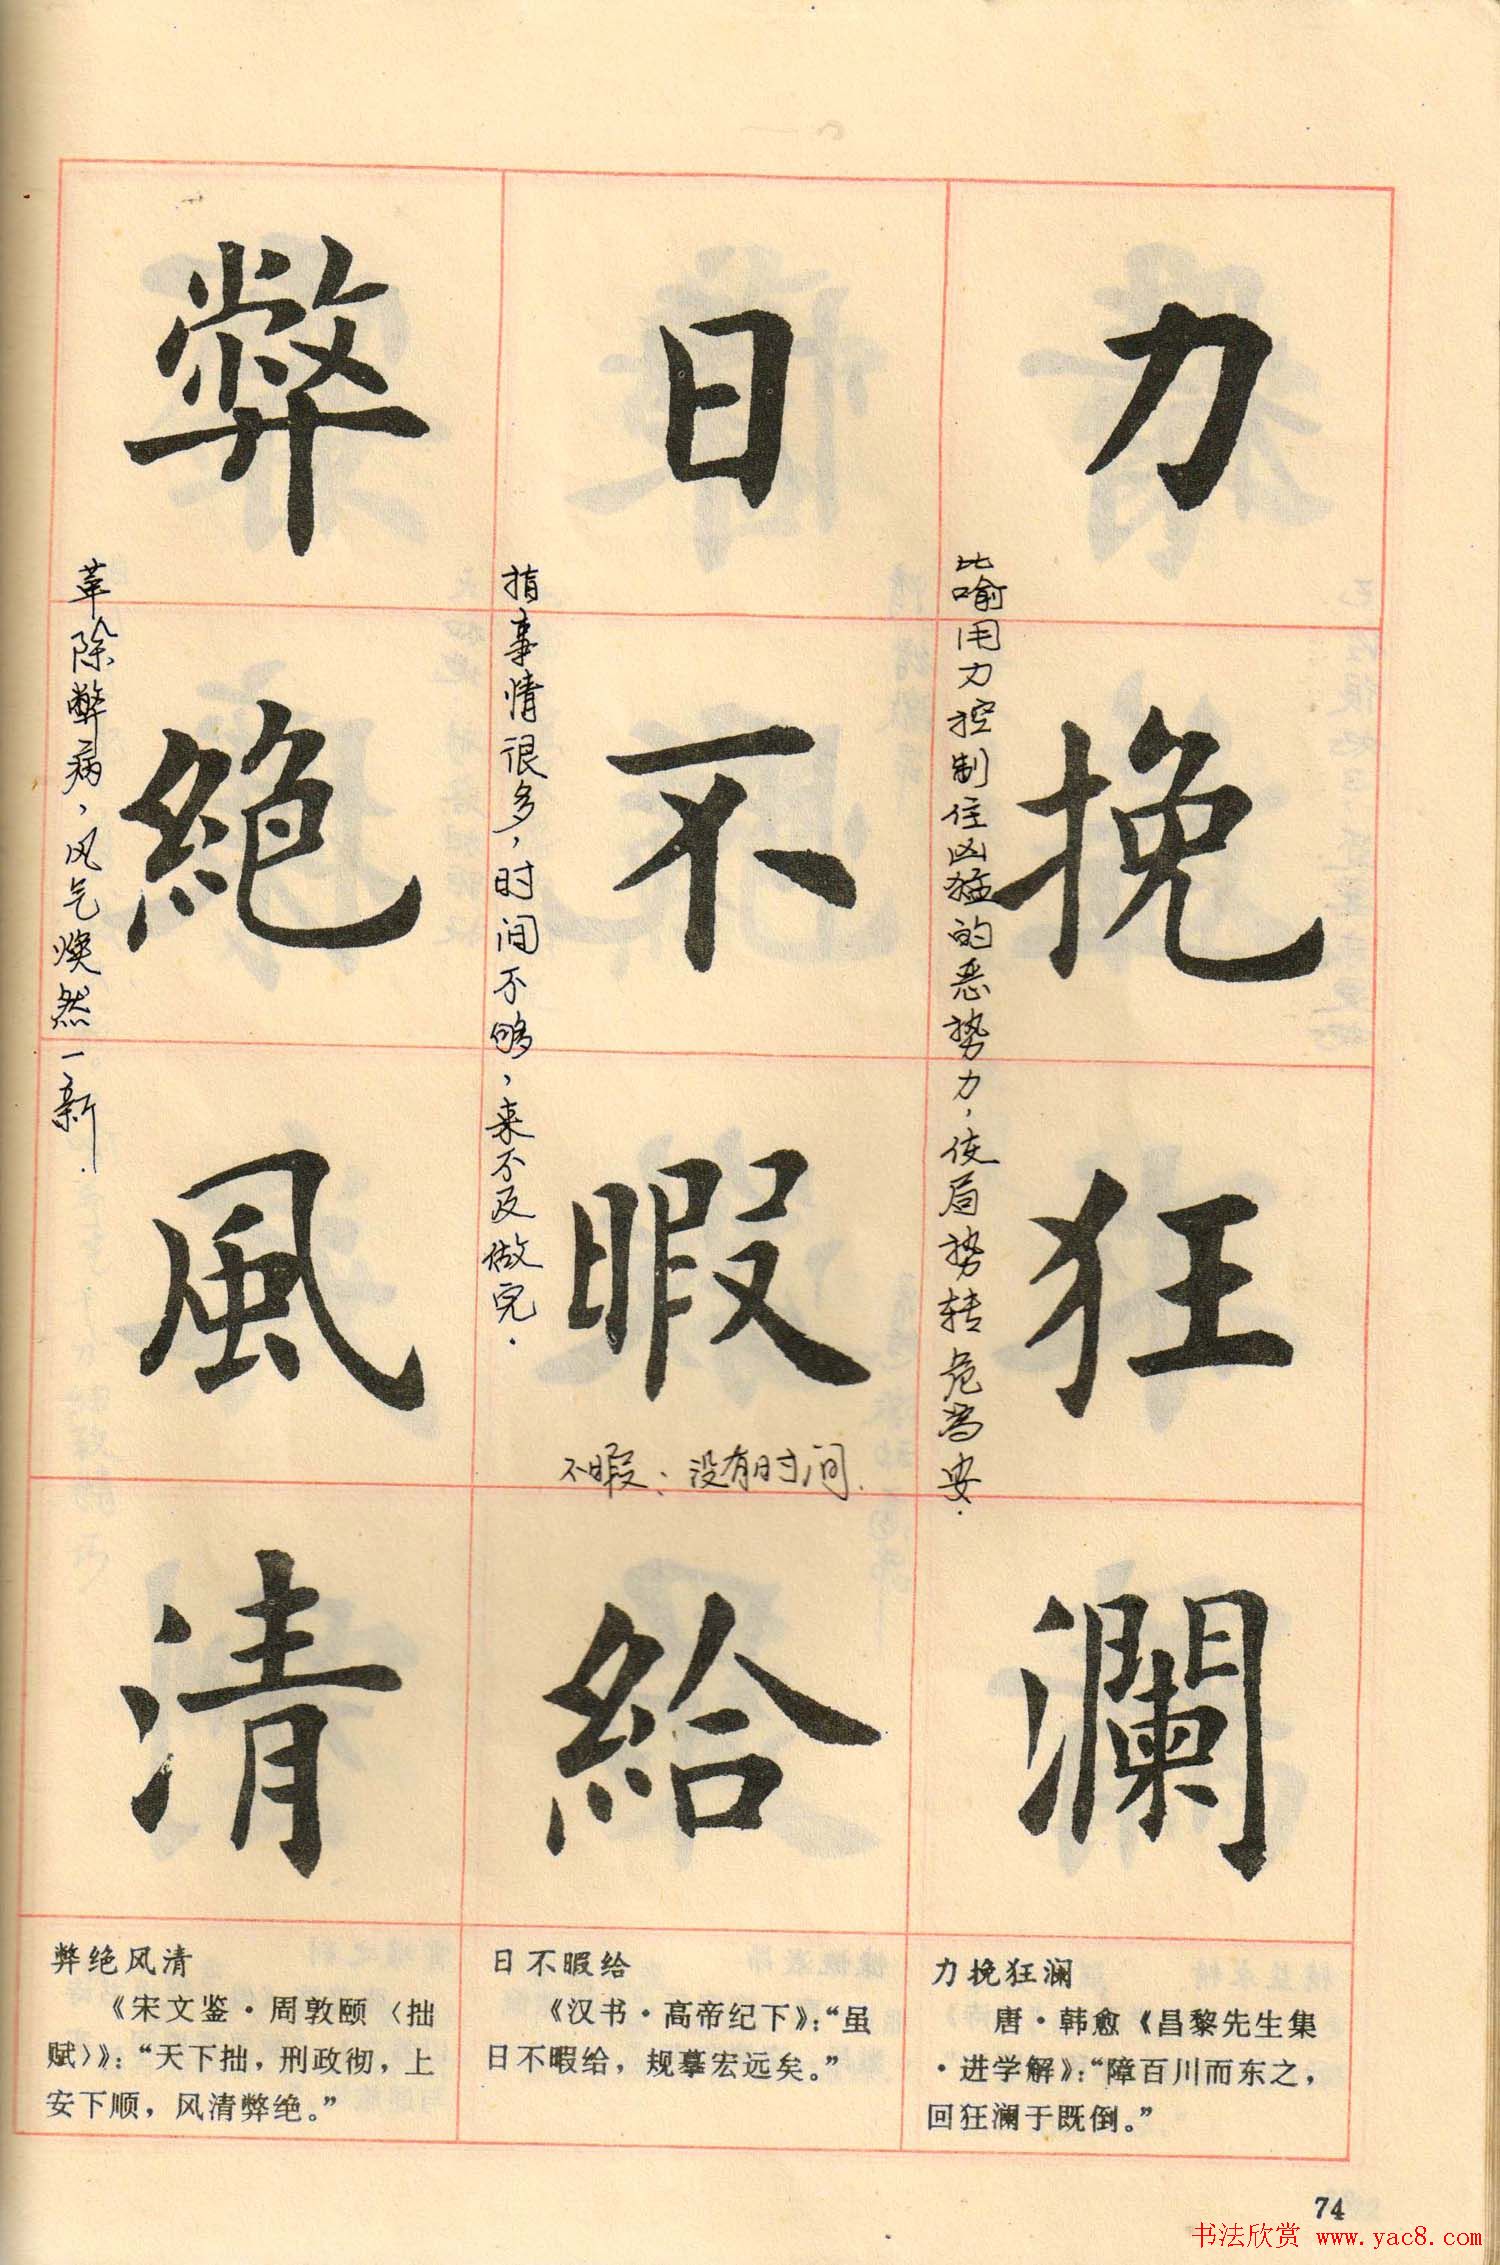 力挽狂澜
比喻用力控制住凶猛的恶势力，使局势转危为安.
日不暇给
指事情很多，时间不够，来不及做完.
不暇：没有时间.
弊絶風清
革除弊病，风气焕然一新.
弊绝风清
《宋文鉴·周敦颐〈拙
赋〉》：“天下拙，刑政彻，上
安下顺，风清弊绝。”
日不暇给
《汉书·高帝纪下》：“虽
日不暇给，规摹宏远矣。”
力挽狂澜
唐·韩愈《昌黎先生集
·进学解》：“障百川而东之，
回狂澜于既倒。”
74
书法欣赏 www.yac8.com